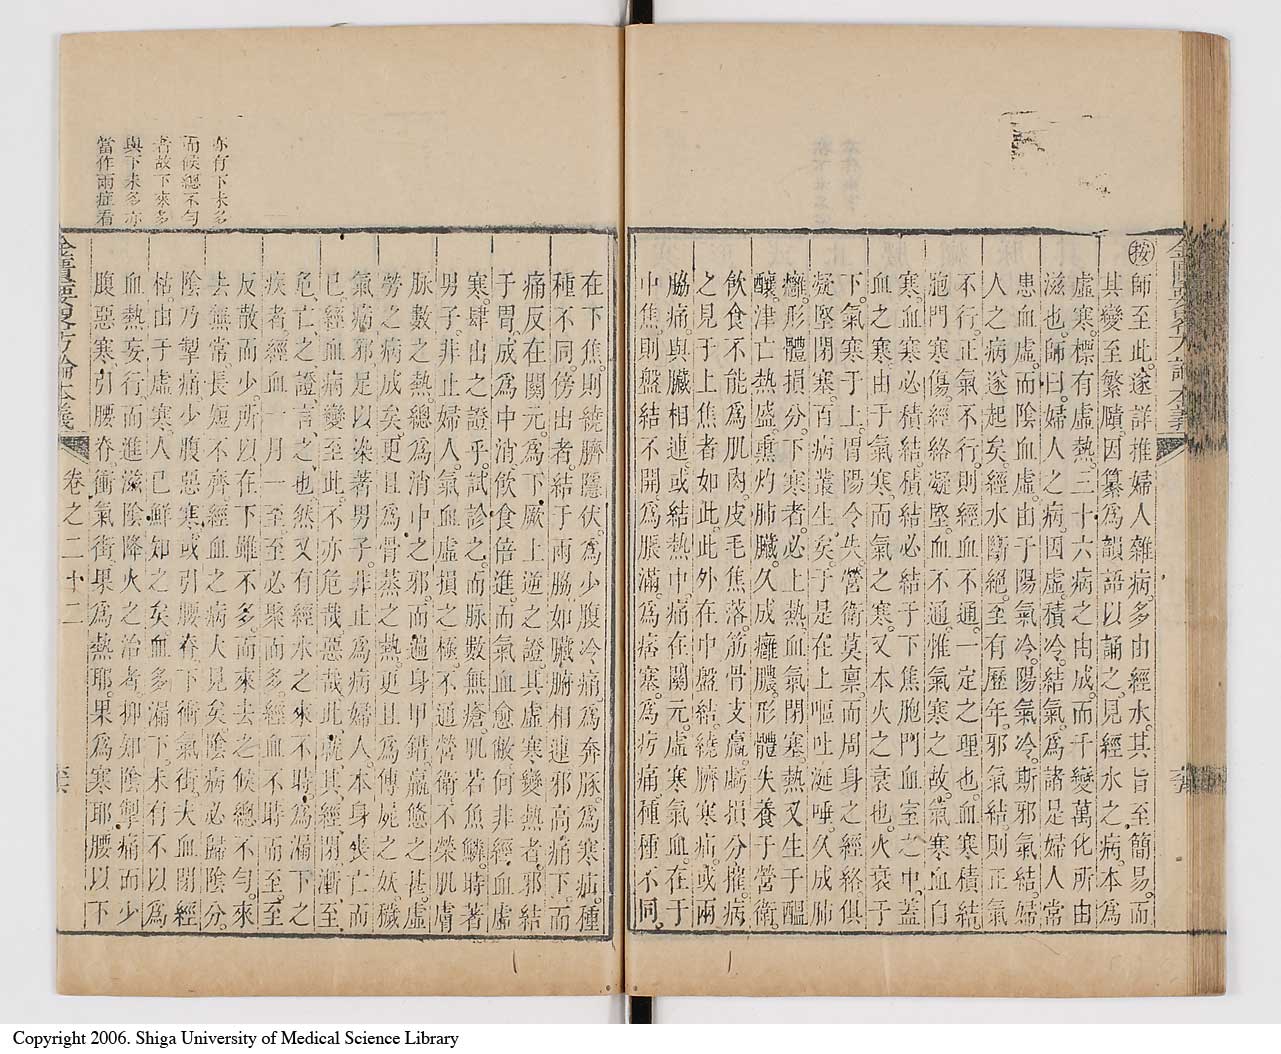 按師至此。遂詳推婦人雜病。多由經水。其旨至簡易。而
其變至繁賾。因纂為韻語以誦之。見經水之病。本為
虛寒。標有虛熱。三十六病之由成。而千變萬化所由
滋也。師曰。婦人之病。因虛積冷。結氣。為諸是婦人常
患血虛。而陰血虛。由于陽氣冷。陽氣冷。斯邪氣結。婦
人之病。遂起矣。經水斷絕。至有歷年。邪氣結。則正氣
不行。正氣不行。則經血不通。一定之理也。血寒積結。
胞門寒傷。經絡凝堅。血不通。惟氣寒之故。氣寒血自
寒。血寒必積結。積結必結于下焦胞門血室之中。蓋
血之寒。由于氣寒。而氣之寒。又本火之衰也。火衰于
下。氣寒于上。胃陽令失。營衛莫稟。而周身之經絡俱
凝堅閉塞。百病叢生矣。于是在上嘔吐涎唾。久成肺
癰。形體損分。下寒者。必上熱。血氣閉塞。熱又生于醞
釀。津亡熱盛。熏灼肺臟。久成癰膿。形體失養于營衛。
飲食不能為肌肉。皮毛焦落。筋骨支羸。虧損分摧。病
之見于上焦者如此。此外在中盤結。繞臍寒疝。或兩
脇痛。與臟相連。或結熱中。痛在關元。虛寒氣血。在于
中焦。則盤結不開。為脹滿。為痞塞。為疠痛種種不同。
在下焦。則繞臍隱伏。為少腹冷痛。為奔豚。為寒疝。種
種不同。傍出者。結于兩脇。如臟腑相連。邪高痛下。而
痛反在關元。為下厥上逆之證。其虛寒變熱者。邪結
于胃。成為中消。飲食倍進。而氣血愈敝。何非經血虛
寒。肆出之證乎。試診之。而脉數無瘡。肌若魚鱗。時著
男子。非止婦人。氣血虛損之極。不通營衛。不榮肌膚
脉數之熱。總為消中之邪。而遍身甲錯。羸憊之甚。虛
勞之病成矣。更且為骨蒸之熱。更且為傳屍之妖。穢
氣病邪。是以染著男子。非止為病婦人。本身喪亡而
已。經血病變至此。不亦危哉。惡哉。此就其經閉漸至
危亡之證言之也。然又有經水之來不時。為漏下之
疾者。經血一月一至。至必聚而多。經血不時而至。至
反散而少。所以在下雖不多。而來去之候總不勻。來
去無常。長短不齊。經血之病大見矣。陰病必歸陰分。
陰乃掣痛。少腹惡寒。或引腰脊。下衝氣街。夫血閉經
枯。由于虛寒。人已鮮知之矣。血多漏下。未有不以為
血熱妄行。而進滋陰降火之治者。抑知陰掣痛而少
腹惡寒。引腰脊。衝氣街。果為熱耶。果為寒耶。腰以下
亦有下未多
而候總不勻
者故下來多
與下未多亦
當作兩症看
金匱要略方論本義
卷之二十二